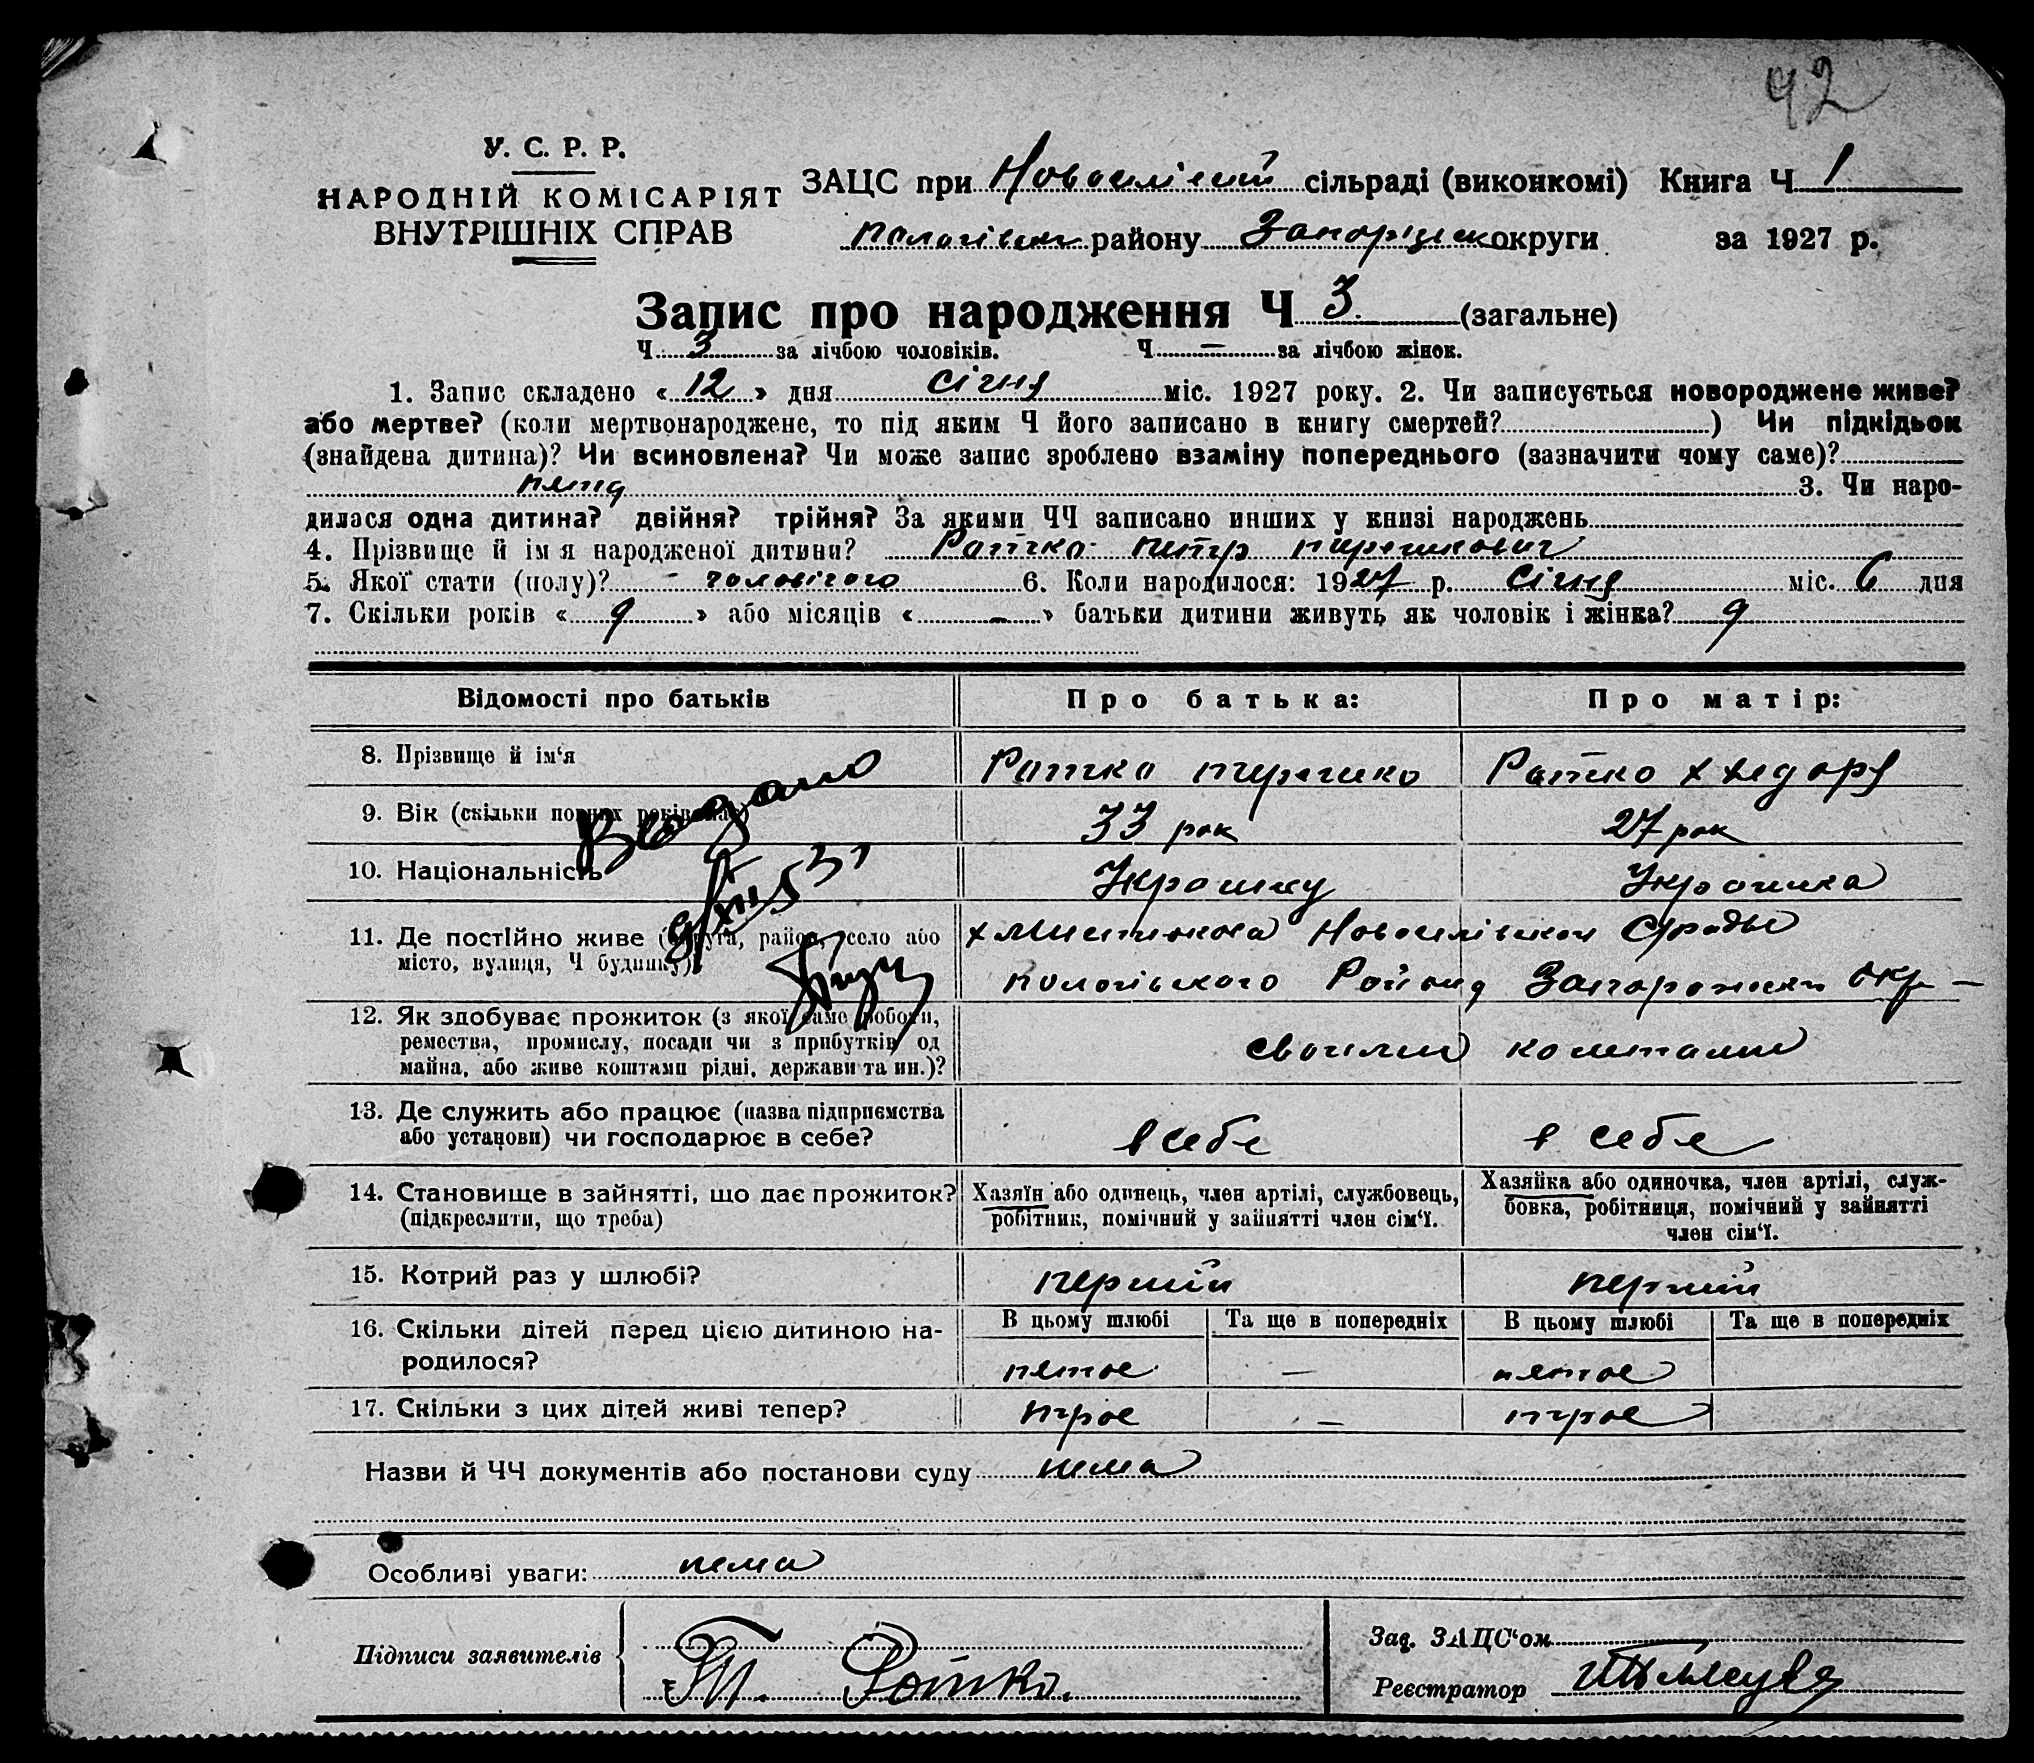 42
У. С. Р. Р.
НАРОДНІЙ КОМІСАРІЯТ
ВНУТРІШНІХ СПРАВ
ЗАЦС при сільраді (виконкомі) Книга Ч 1
району округи за 1927 р.
Запис про народження Ч 3 (загальне)
Ч 3 за лічбою чоловіків. Ч — за лічбою жінок.
1. Запис складено « 12 » дня січня міс. 1927 року. 2. Чи записується новороджене живе?
або мертве? (коли мертвонароджене, то під яким Ч його записано в книгу смертей? ) Чи підкідьок
(знайдена дитина)? Чи всиновлена? Чи може запис зроблено взаміну попереднього (зазначити чому саме)?
3. Чи наро-
дилася одна дитина? двійня? трійня? За якими ЧЧ записано инших у книзі народжень
4. Прізвище й ім я народженої дитини? Ратко петр
5. Якої стати (полу)? - чоловічого 6. Коли народилося: 1927 р. січня міс. 6 дня
7. Скільки років « 9 » або місяців « - » батьки дитини живуть як чоловік і жінка? 9
Відомості про батьків Про батька: Про матір:
8. Прізвище й ім‘я Ратко Ратко
9. Вік (скільки повних років має) 33 рок 27 рок
10. Національність
11. Де постійно живе (округа, район, село або
місто, вулиця, Ч будинку)
12. Як здобуває прожиток (з якої саме роботи,
ремества, промислу, посади чи з прибутків од
майна, або живе коштами рідні, держави та ин.)?
своими коштами
13. Де служить або працює (назва підприємства
або установи) чи господарює в себе?
в себе в себе
14. Становище в зайнятті, що дає прожиток?
(підкреслити, що треба)
Хазяїн або одинець, член артілі, службовець,
робітник, помічний у зайнятті член сім‘ї.
Хазяйка або одиночка, член артілі, служ-
бовка, робітниця, помічний у зайнятті
член сім‘ї.
15. Котрий раз у шлюбі? перший перший
16. Скільки дітей перед цією дитиною на-
родилося?
В цьому шлюбі Та ще в попередніх В цьому шлюбі Та ще в попередніх
пятое — пятое
17. Скільки з цих дітей живі тепер? трое — трое
Назви й ЧЧ документів або постанови суду нема
Особливі уваги: нема
Видано
Підписи заявителів Т. Ратко.
Зав. ЗАЦС‘ом
Реєстратор